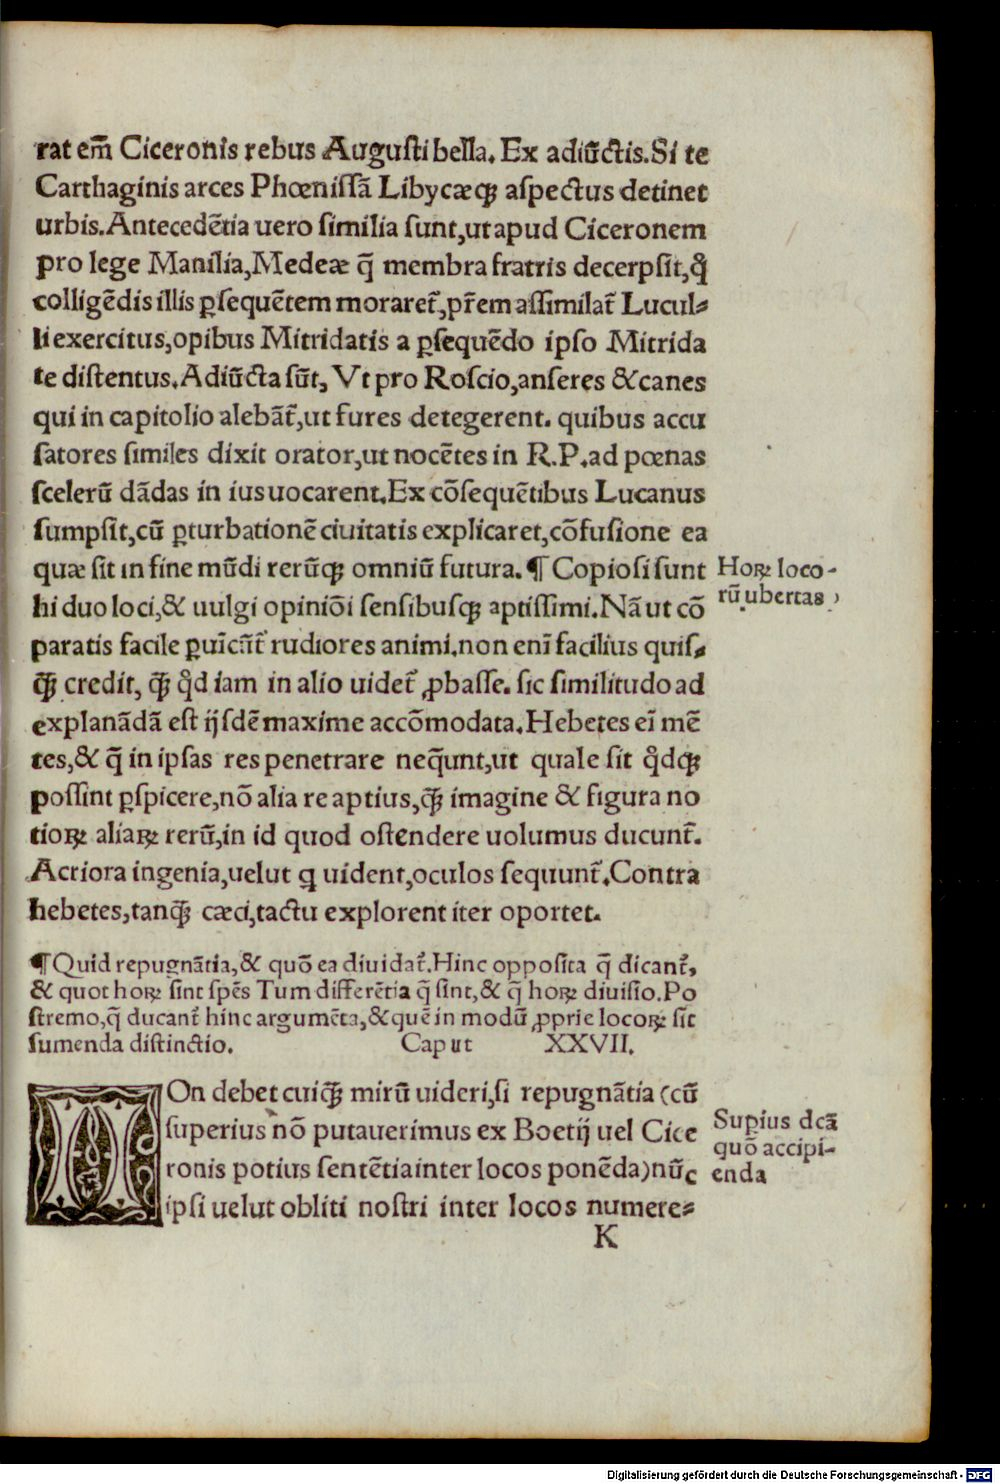 rat em̄ Ciceronis rebus Augusti bella. Ex adiūctis. Si te
Carthaginis arces Phœnissā Libycæqꝫ aspectus detinet
urbis. Antecedētia uero similia sunt, ut apud Ciceronem
pro lege Manilia, Medeæ q̄ membra fratris decerpsit, qͥ
colligēdis illis ꝑsequētem moraret̃, pr̃em assimilat̃ Lucul⸗
li exercitus, opibus Mitridatis a ꝑsequēdo ipso Mitrida
te distentus. Adiūcta sūt, Vt pro Roscio, anseres & canes
qui in capitolio alebāt̃, ut fures detegerent. quibus accu
satores similes dixit orator, ut nocētes in R.P. ad pœnas
scelerū dādas in ius uocarent. Ex cōsequētibus Lucanus
sumpsit, cū ꝑturbationē ciuitatis explicaret, cōfusione ea
quæ sit in fine mūdi rerūqꝫ omniū futura. ¶ Copiosi sunt
hi duo loci, & uulgi opiniōi sensibusqꝫ aptissimi. Nā ut cō
paratis facile ꝑuīcūt̃ rudiores animi. non eni facilius quis⸗
qꝫ̄ credit, qꝫ̄ qͥd iam in alio uidet̃ ꝓbasse. sic similitudo ad
explanādā est ijsdē maxime accōmodata. Hebetes ei mē
tes, & q̄ in ipsas res penetrare neq̄unt, ut quale sit qͥdqꝫ
possint ꝑspicere, nō alia re aptius, qꝫ̄ imagine & figura no
tioꝝ aliaꝝ rerū, in id quod ostendere uolumus ducunt̃.
Acriora ingenia, uelut q uident, oculos sequunt̃. Contra
hebetes, tanqꝫ̄ cæci, tactu explorent iter oportet.
Hoꝝ loco-
rū ubertas
¶ Quid repugnātia, & quō ea diuidat̃. Hinc opposita q̄ dicant̃,
& quot hoꝝ sint spēs Tum differētia q̄ sint, & q̄ hoꝝ diuisio. Po
stremo, q̄ ducant̃ hinc argumēta, & quē in modū ꝓprie locoꝝ sit
sumenda distinctio. Caput XXVII.
NOn debet cuiqꝫ̄ mirū uideri, si repugnātia (cū
superius nō putauerimus ex Boetij uel Cice
ronis potius sentētia inter locos ponēda) nūc
ipsi uelut obliti nostri inter locos numere⸗
Supius dcā
quō accipi-
enda
K
Digitalisierung gefördert durch die Deutsche Forschungsgemeinschaft - DFG